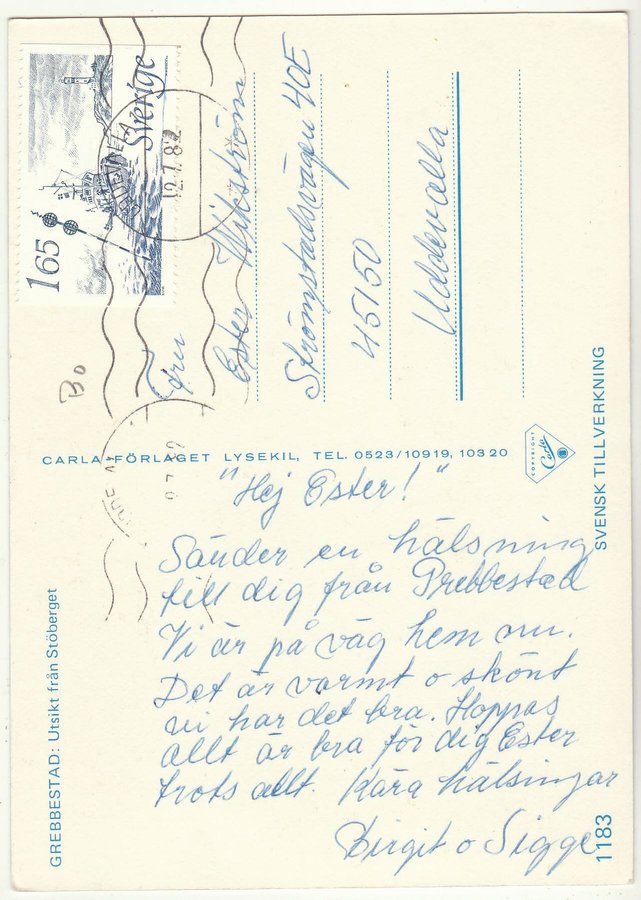 Sverige
165
UDDEVALLA
12.7.82
Bo
Fru
Ester Wikström
Strömstadsvägen 40E
45150
Uddevalla
CARLA-FÖRLAGET LYSEKIL, TEL. 0523/10919, 10320
COPYRIGHT
Carla
SVENSK TILLVERKNING
"Hej Ester!"
Sänder en hälsning
till dig från Prebbestad
Vi är på väg hem nu.
Det är varmt o skönt
vi har det bra. Hoppas
allt är bra för dig Ester
trots allt. Kära hälsingar
Birgit o Sigge
GREBBESTAD: Utsikt från Stöberget
1183